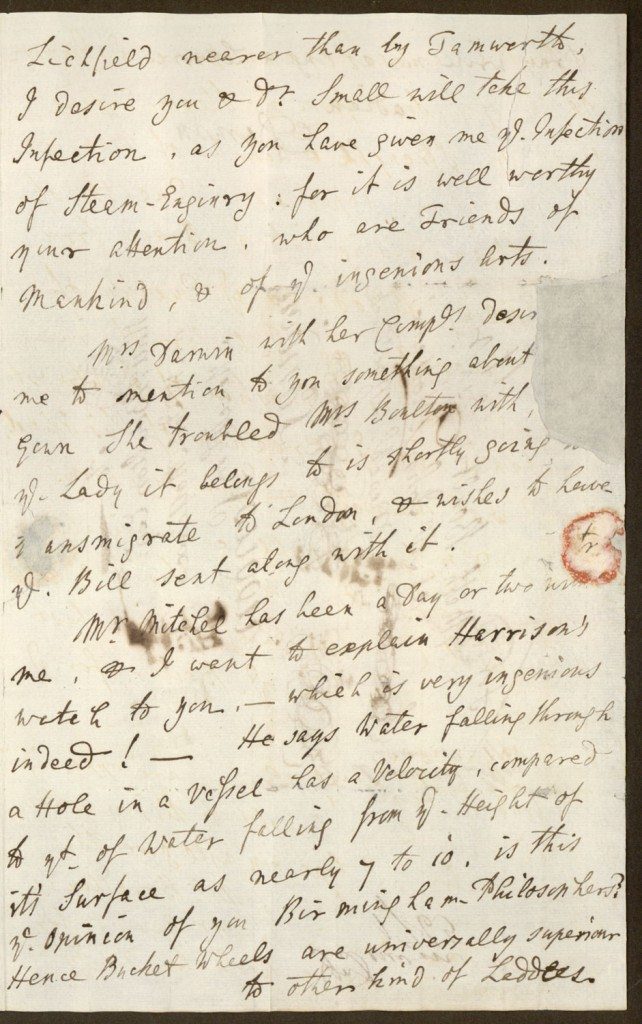 Lichfield nearer than by Tamworth.
I desire you & Dr. Small will take this
Infection, as you have given me ye. Infection
of Steam-Enginry: for it is well worthy
your attention, who are Friends of
Mankind, & of ye. ingenious Arts.
Mrs Darwin with her Compts. desir
me to mention to you something about
Gown she troubled Mrs Boulton with,
ye. Lady it belongs to is shortly going
to London, & wishes to have
ye. Bill sent along with it.
tr
ansmigrate
Mr Mitchel has been a Day or two
me, & I want to explain Harrison's
watch to you, — which is very ingenious
indeed! — He says Water falling through
a Hole in a Vessel has a Velocity, compared
to yt. of Water falling from ye. Height of
its Surface as nearly 7 to 10. is this
ye. Opinion of you Birmingham-Philosophers?
Hence Bucket Wheels are universally superiour
to other kind of